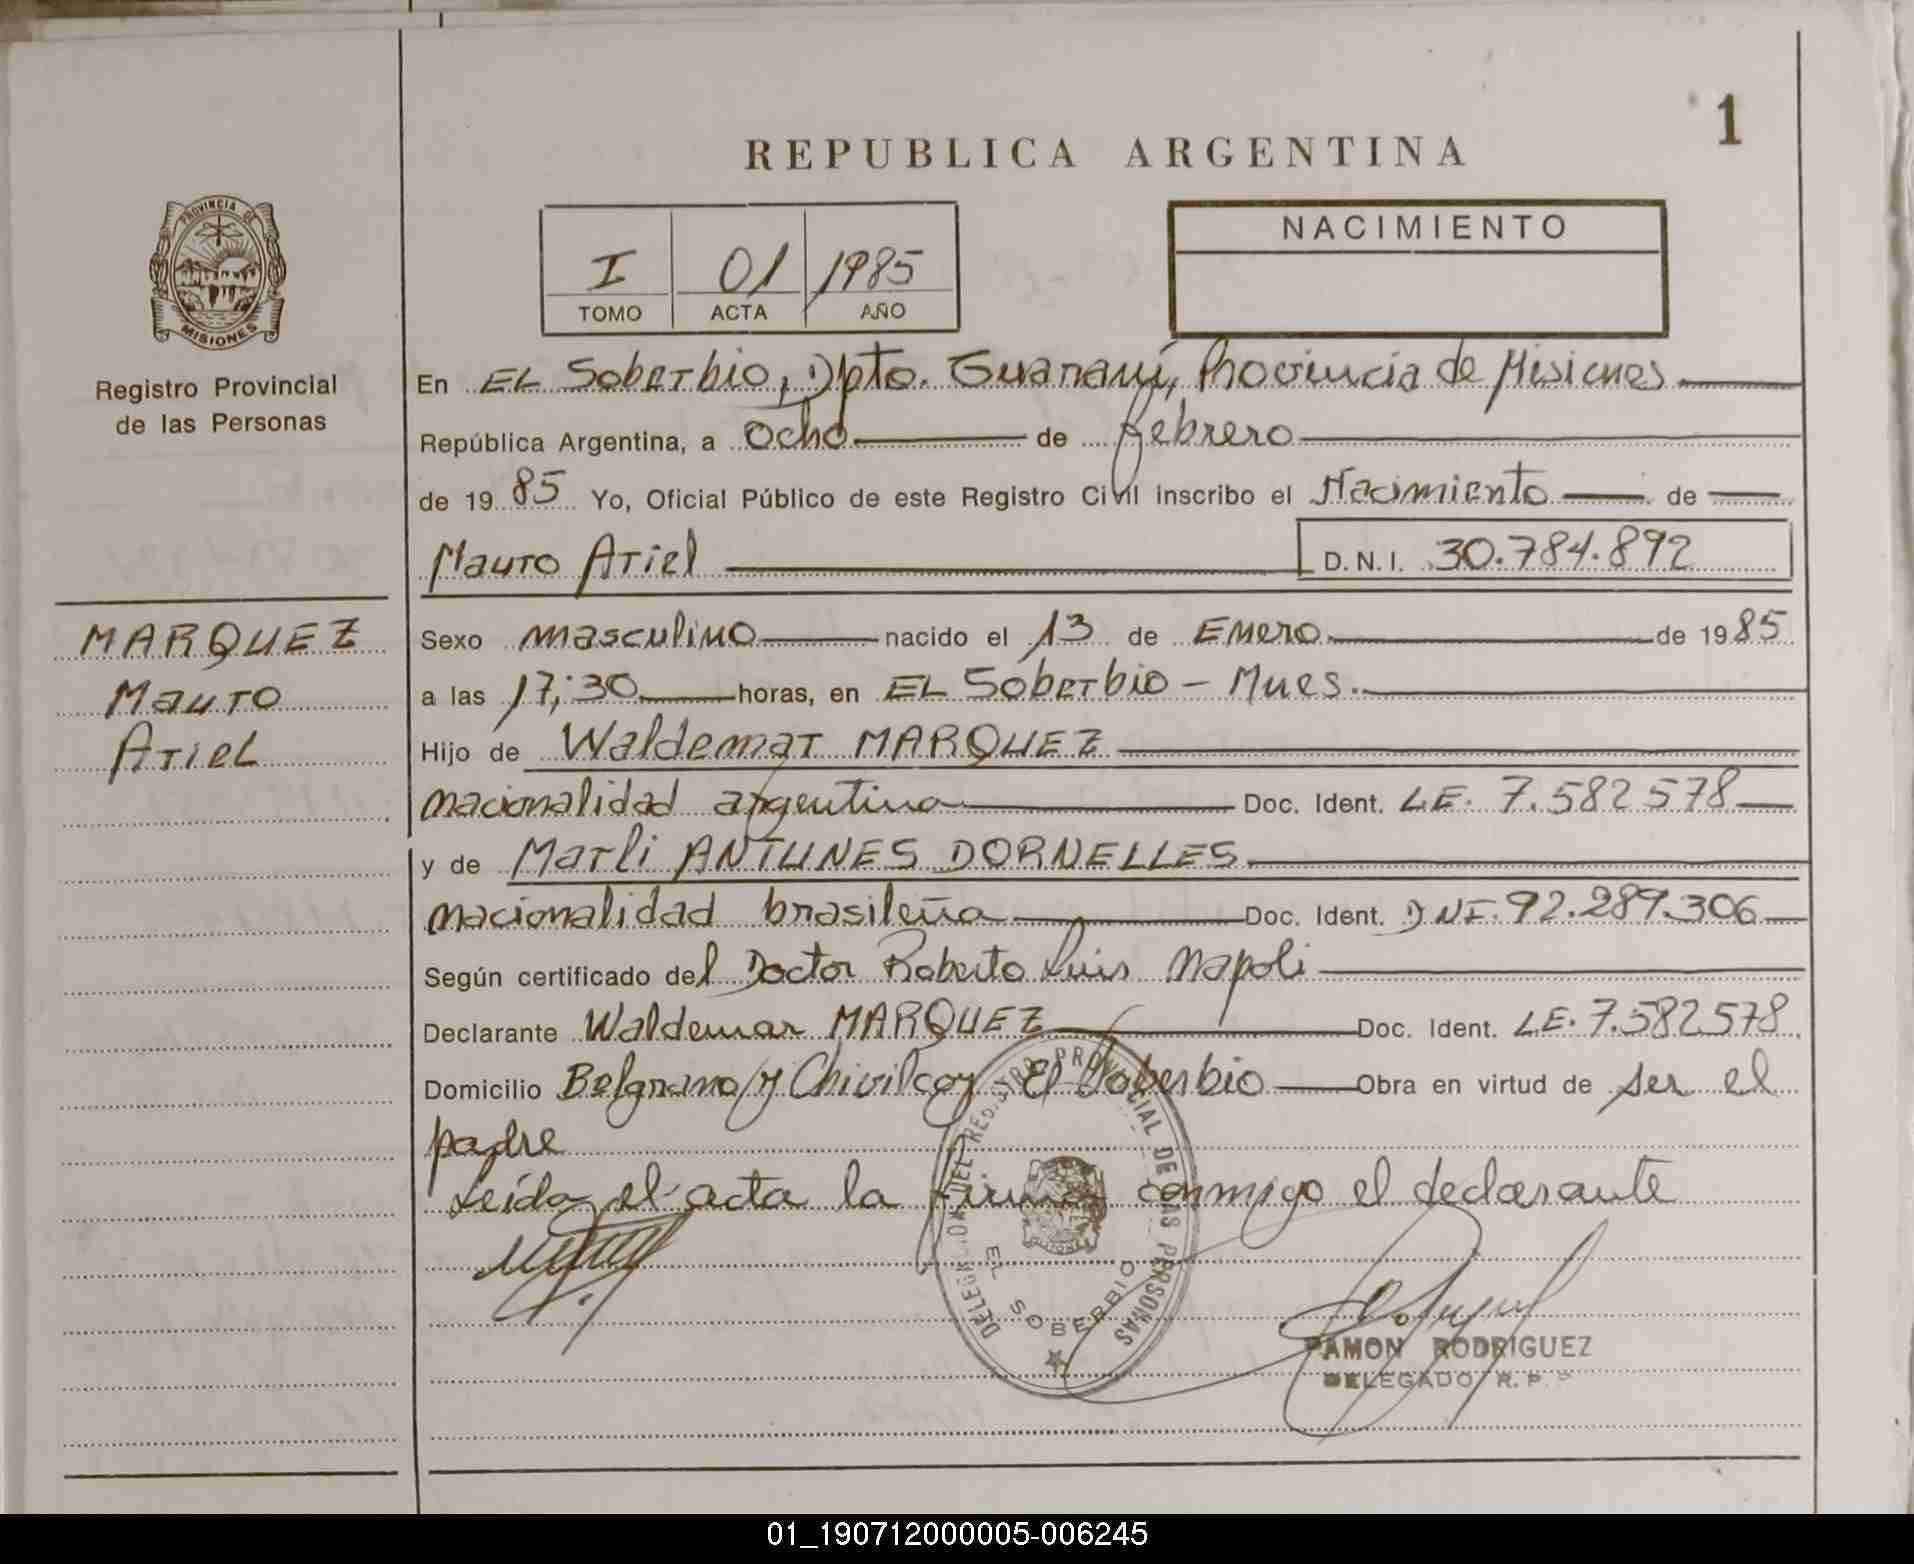 1
REPUBLICA ARGENTINA
PROVINCIA DE
MISIONES
Registro Provincial
de las Personas
I 01 1985
TOMO ACTA AÑO
NACIMIENTO
En EL Soberbio, Dpto. Guaraní, Provincia de Misiones
República Argentina, a ocho de febrero
de 1985 Yo, Oficial Público de este Registro Civil inscribo el Nacimiento de
Mauro Ariel D.N.I. 30.784.892
MARQUEZ
Mauro
Ariel
Sexo masculino nacido el 13 de Enero de 1985
a las 17;30 horas, en EL Soberbio - Mnes.
Hijo de Waldemar MARQUEZ
nacionalidad argentina Doc. Ident. L.E. 7.582578
y de Marli ANTUNES DORNELLES
nacionalidad brasileña Doc. Ident. DNI. 92.289.306
Según certificado del Doctor Roberto Luis Napoli
Declarante Waldemar MARQUEZ Doc. Ident. L.E. 7.582578
Domicilio Belgrano y Chivilcoy El Soberbio Obra en virtud de ser el
padre
Leída el acta la firma conmigo el declarante
DELEGACION DEL REGISTRO PROVINCIAL DE LAS PERSONAS
EL SOBERBIO
RAMON RODRIGUEZ
DELEGADO R.P.P
01_190712000005-006245